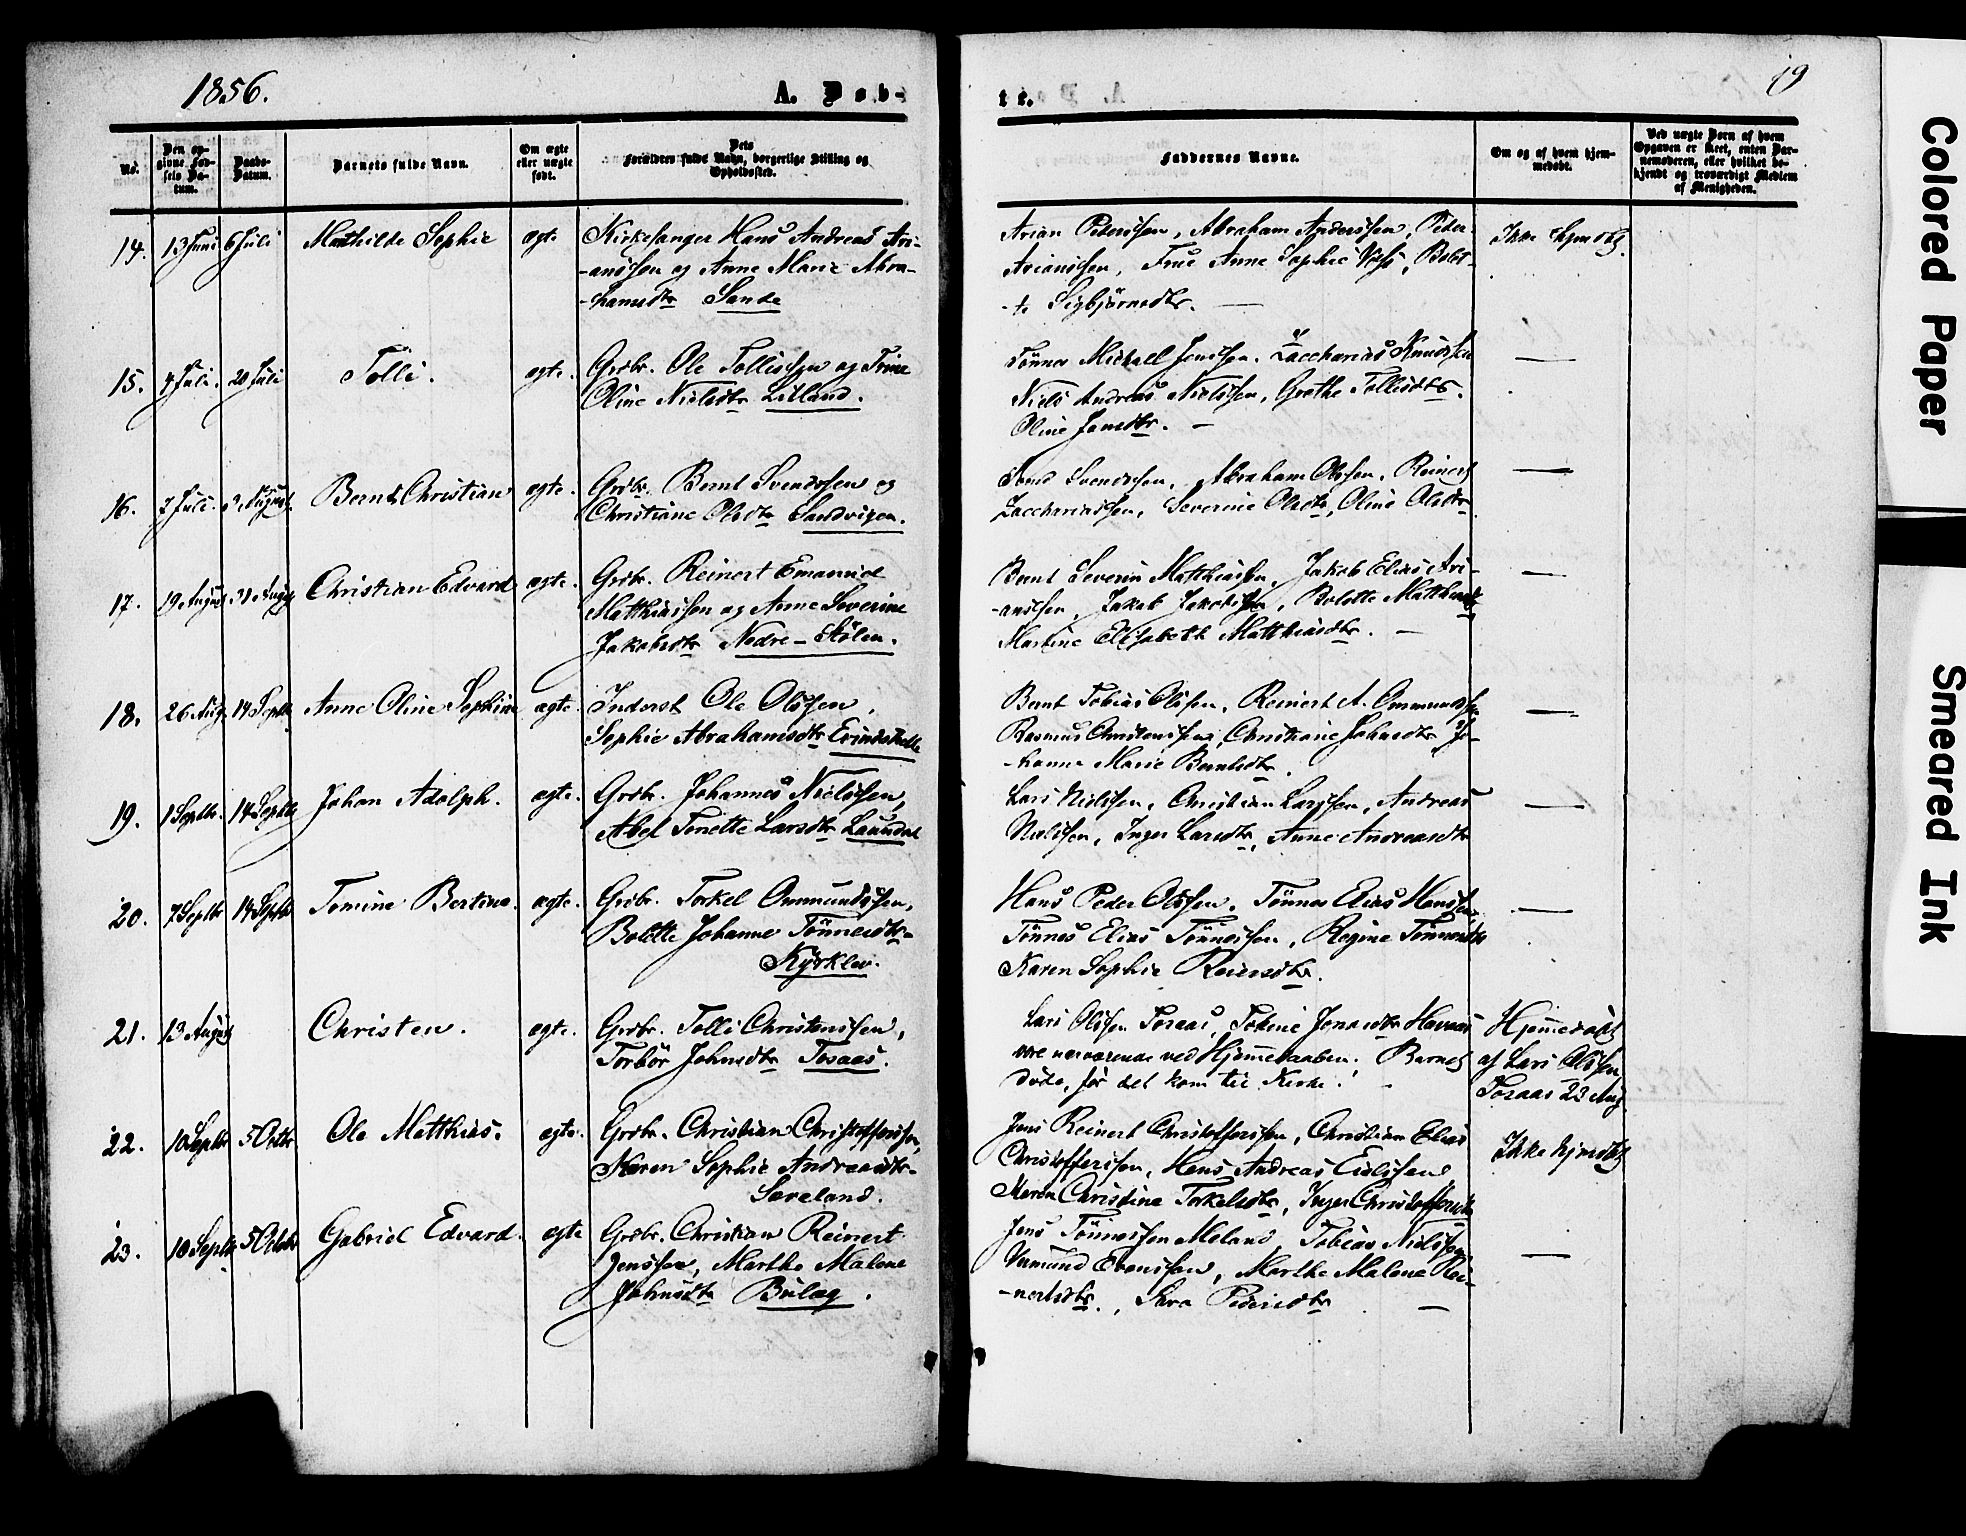 1856.
A. Døb-
te.
19
No.
Den opgivne Fødsels Datum.
Daabs-Datum.
Barnets fulde Navn.
Om ægte eller uægte født.
Dets Forældres fulde Navn, borgerlige Stilling og Opholdssted.
Faddernes Navne.
Om og af hvem hjemmedøbt.
Ved uægte Børn af hvem Opgaven er skeet, enten Barnemoderen, eller hvilket bekjendt og troværdigt Medlem af Menigheden.
14. 13 Juni 6 Juli Mathilde Sophie ægte Kirkesanger Hans Andreas Ari-
-anssen og Anne Marie Abra-
-hamsdtr Sande
Arian Pederssen, Abraham Anderssen, Peder
Arianssen, Frue Anne Sophie Voss, Bolet-
-te Sigbjørnsdtr. —
Ikke hjmdbt.
15. 4 Juli. 20 Juli Tolli. ægte. Grdbr. Ole Tollissen og Trine
Oline Nielsdtr Litland.
Tønnes Michael Jenssen. Zaccharias Knudssen
Niels Andreas Nielssen, Grethe Tollisdtr.
Oline Jansdtr. —
—
16. 7 Juli. 3 August. Bernt Christian ægte. Grdbr. Bernt Svendssen og
Christiane Olsdtr Sandvigen.
Svend Svendssen, Abraham Olssen, Reinert
Zacchariassen, Severine Olsdtr, Oline Olsdtr
—
17. 19 August 31 August Christian Edvard ægte. Grdbr. Reinert Emanuel
Matthiassen og Anne Severine
Jakobsdtr Nedre-Stølen.
Bernt Severin Matthiassen, Jakob Elias Ari-
-anssen, Jakob Jakobssen, Bolette Matthiasdtr
Martine Elisabeth Matthiasdtr. —
—
18. 26 Aug. 14 Septbr Anne Oline Sophine ægte. Inderst Ole Olssen,
Sophie Abrahamsdtr
Bernt Tobias Olssen, Reinert A. Ommundssen
Rasmus Christenssen, Christiane Johnsdtr Jo-
-hanne Marie Berntsdtr.
—
19. 1 Septbr. 14 Septbr Johan Adolph. ægte. Grdbr. Johannes Nielssen,
Abel Tonette Larsdtr Laundal
Lars Nielssen, Christian Larssen, Andreas
Nielssen, Inger Larsdtr, Anne Andreasdtr
—
20. 7 Septbr 14 Septbr Tomine Bertine. ægte. Grdbr. Torkel Ommundssen,
Bolette Johanne Tønnesdtr-
Kyrklev.
Hans Peder Olssen. Tønnes Elias Hanssen
Tønnes Elias Tønnessen, Regine Tønnesdtr
Karen Sophie Reiersdtr.
—
21. 13 August Christen. ægte. Grdbr. Tolli Christenssen,
Torbør Johnsdtr Tosaas.
Lars Olssen Tosaas, Tomine Jonasdtr Haveaas
vare nærværende ved Hjemmedaaben. Barnet
døde, før det kom til Kirke.
Hjemmedøbt
af Lars Olssen
Tosaas 23 Aug.
22. 10 Septbr 5 Octbr. Ole Matthias. ægte. Grdbr. Christian Christofferssen,
Karen Sophie Andreasdtr-
Sæveland.
Jens Reinert Christofferssen, Christian Elias
Christofferssen, Hans Andreas Eielssen
Maren Christine Torkelsdtr, Inger Christoffersdtr
Ikke hjmdbt
23. 10 Septbr 5 Octobr Gabriel Edvard. ægte Grdbr. Christian Reinert
Jenssen, Marthe Malene
Johnsdtr Bulæg.
Jens Tønnessen Meland, Tobias Nielssen
Vermund Evenssen, Marthe Malene Rei-
-nertsdtr., Sara Pedersdtr —
—
Colored Paper
Smeared Ink